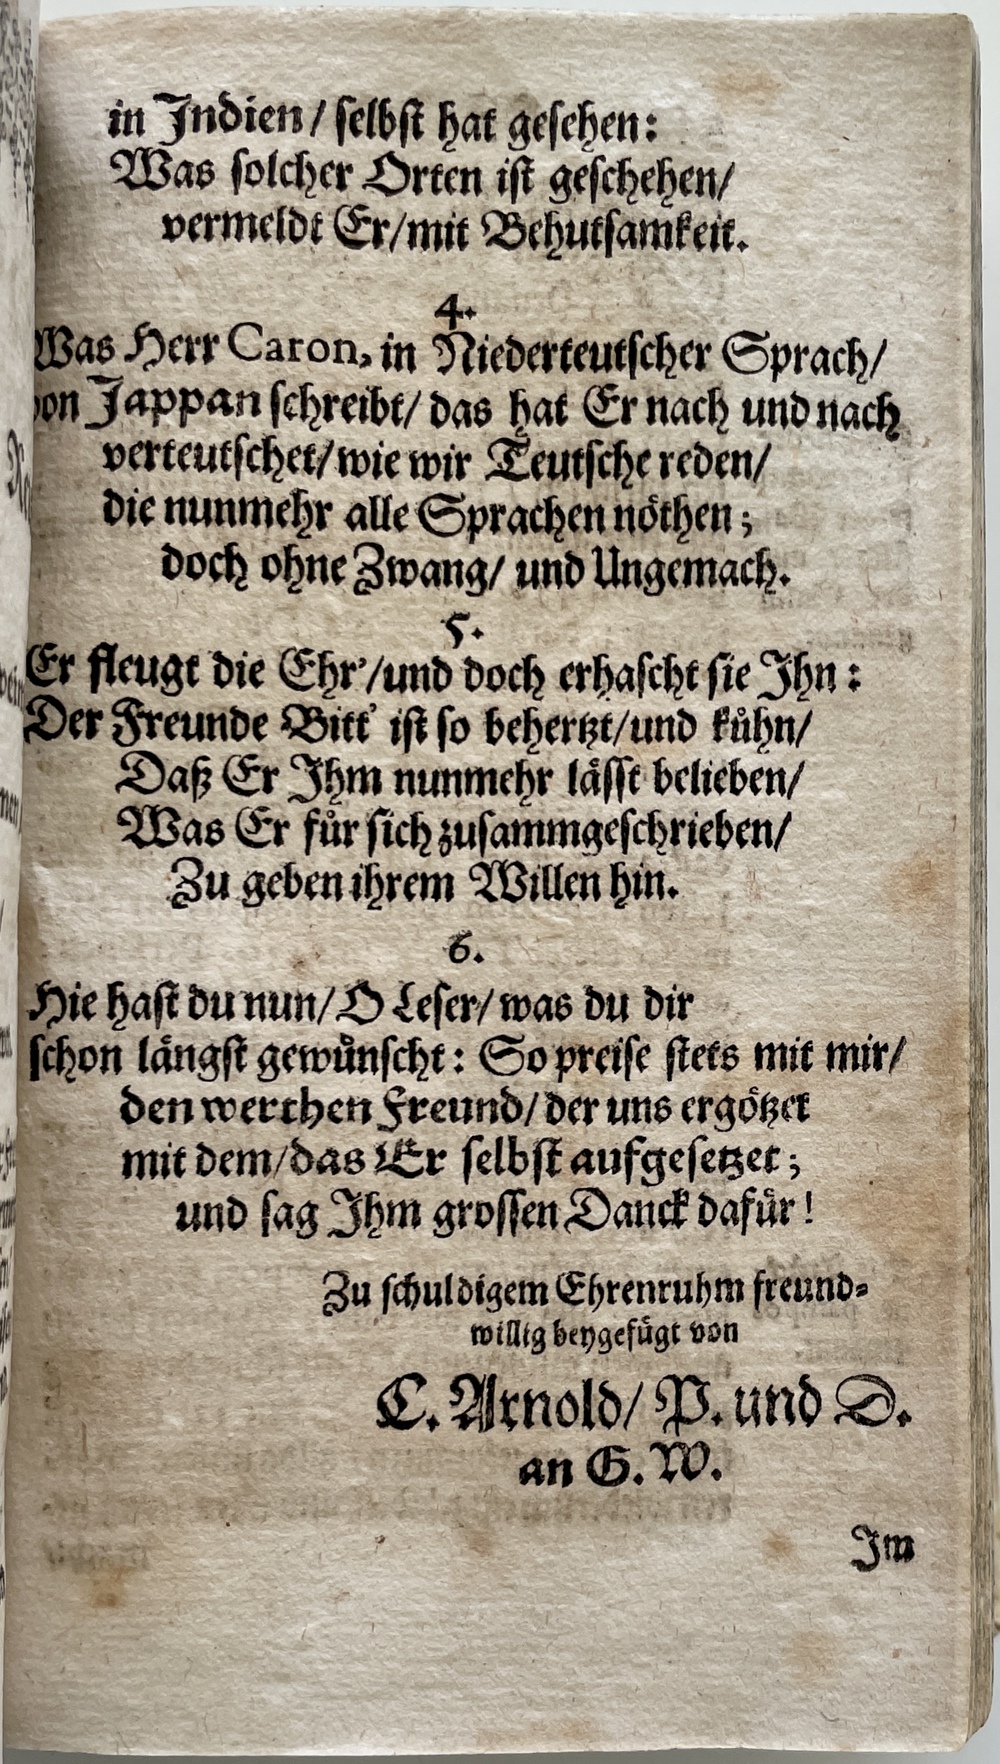 in Jndien / selbst hat gesehen:
Was solcher Orten ist geschehen/
vermeldt Er/mit Behutsamkeit.
4.
Was Herr Caron, in Niederteutscher Sprach/
von Jappan schreibt/ das hat Er nach und nach
verteutschet/wie wir Teutsche reden/
die nunmehr alle Sprachen nöthen;
doch ohne Zwang/ und Ungemach.
5.
Er fleugt die Ehr’/und doch erhascht sie Jhn:
Der Freunde Bitt’ ist so behertzt/und kuͤhn/
Daß Er Jhm nunmehr lässt belieben/
Was Er fuͤr sich zusammgeschrieben/
Zu geben ihrem Willen hin.
6.
Hie hast du nun/ O Leser/ was du dir
schon längst gewuͤnscht: So preise stets mit mir/
den werthen Freund/ der uns ergötzet
mit dem/das Er selbst aufgesetzet;
und sag Jhm grossen Danck dafuͤr!
Zu schuldigem Ehrenruhm freund⸗
willig beygefuͤgt von
C. Arnold/ P. und D.
an G. W.
Jm